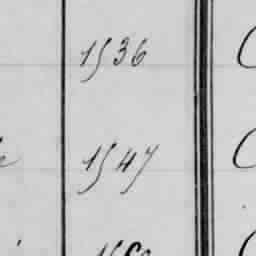 1536
1547